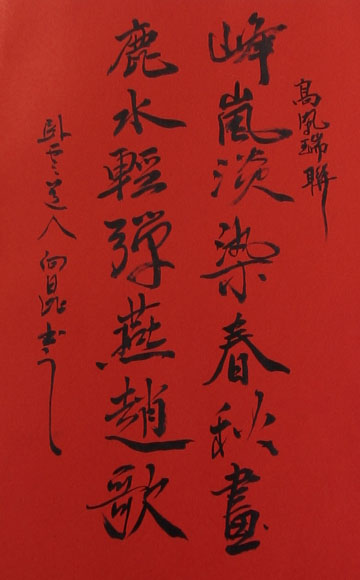 高鳳瑞聯
峰嵐淡染春秋畫
鹿水輕彈燕趙歌
卧雲道人向昆書